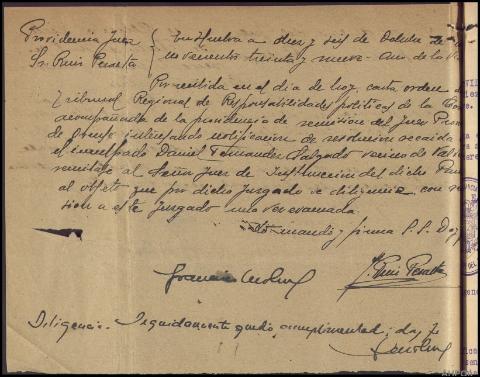 Providencia Juez
Sr. Ruiz Peralta
En Huelva a diez y seis de Octubre de
novecientos treinta y nueve. Año de la
Por recibida en el dia de hoy, carta orden del
Tribunal Regional de Responsabilidades politicas de la
acompañada de la providencia de remisión del Juez
de interesando notificación de resolución recaida
el inculpado Daniel Fernandez Salgado vecino de
remitase al Señor Juez de Instrucción del dicho
al objeto que por dicho Juzgado se diligencie, con
sion a este Juzgado una vez evacuada.
Lo mandó y firma S.S. Doy
J. Ruiz Peralta
Diligencia. Seguidamente quedó cumplimentado; doy fe